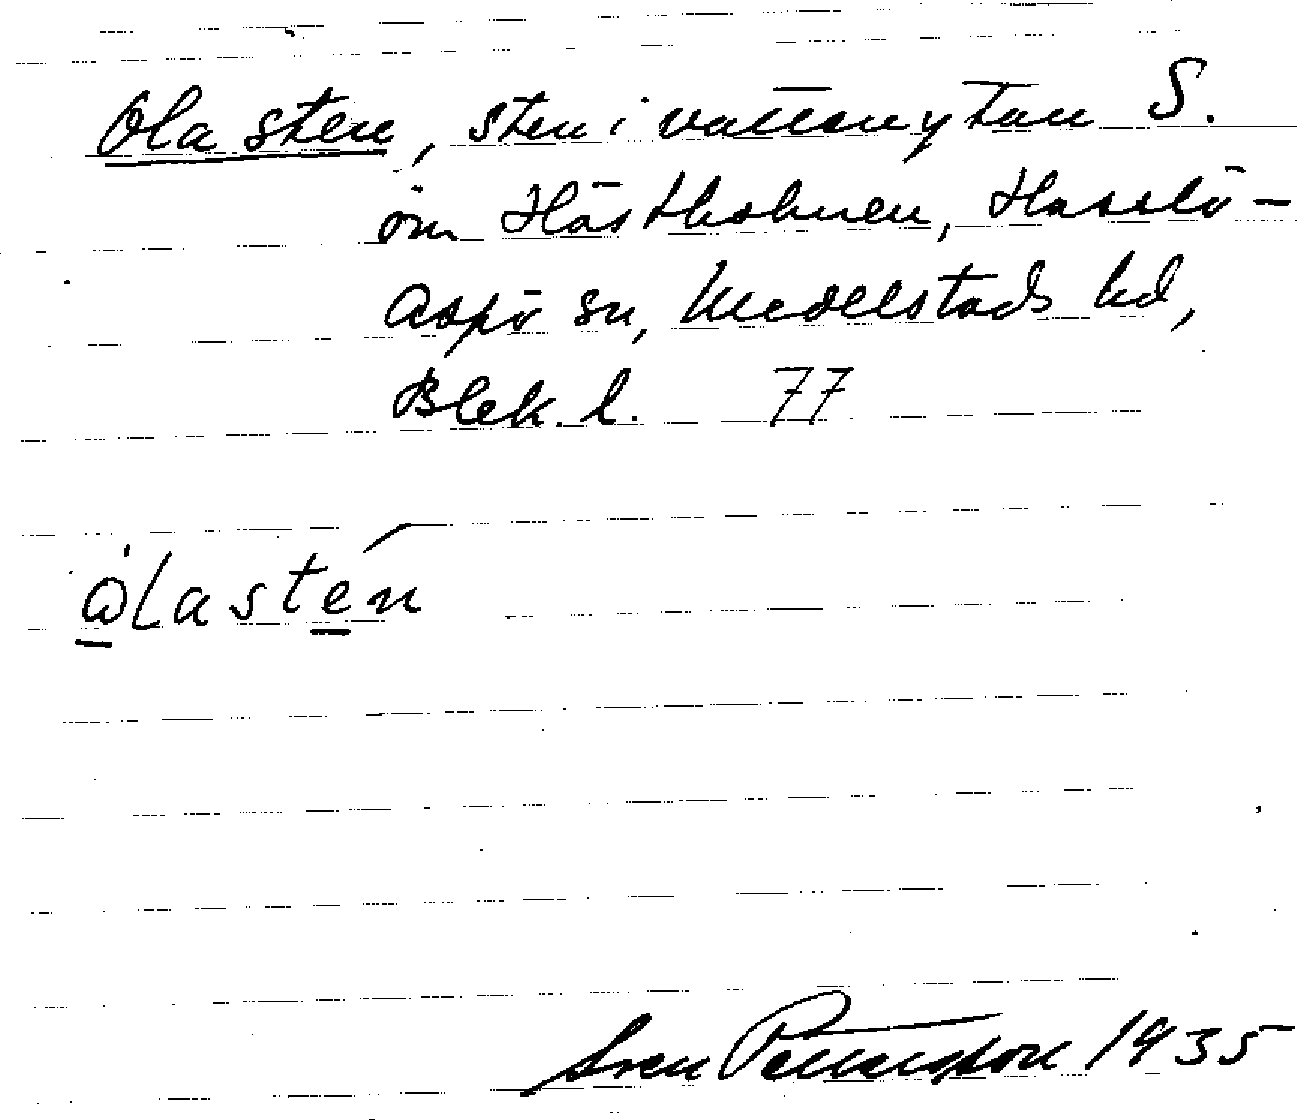 Ola sten, sten i vattenytan S.
om Hästholmen, Hasslö-
Aspö sn, Medelstads hd,
Blek. l. 77
Sven Pettersson 1935